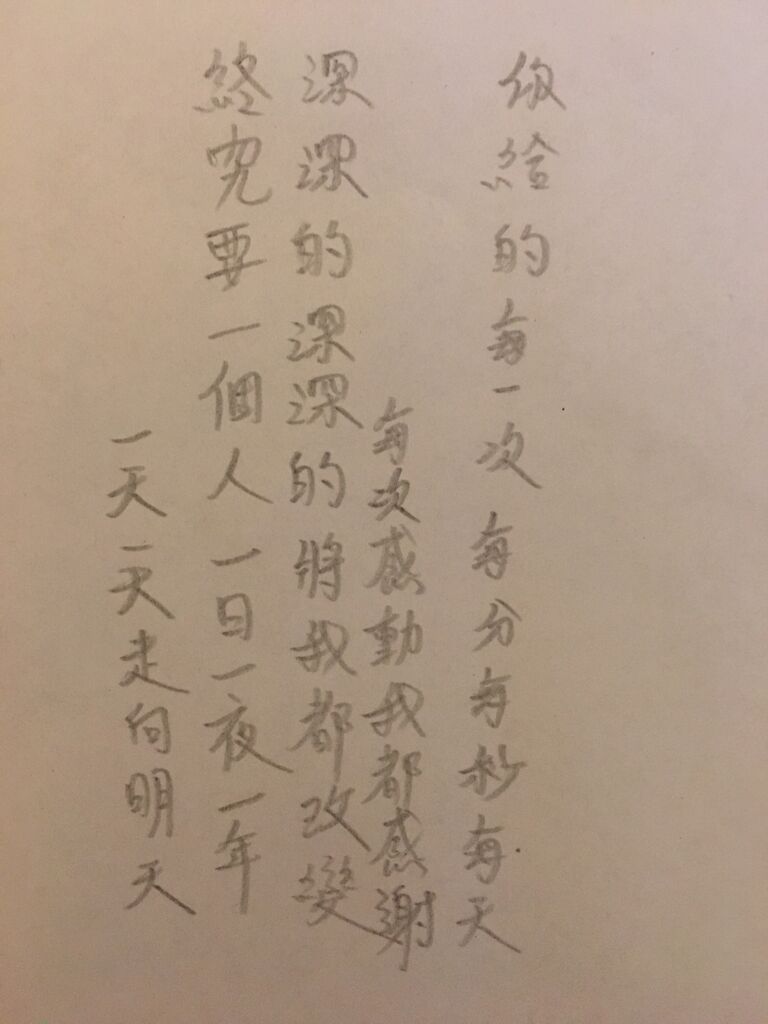 你給的每一次 每分每秒每天
每次感動我都感謝
深深的深深的將我都改變
終究要一個人一日一夜一年
一天一天走向明天